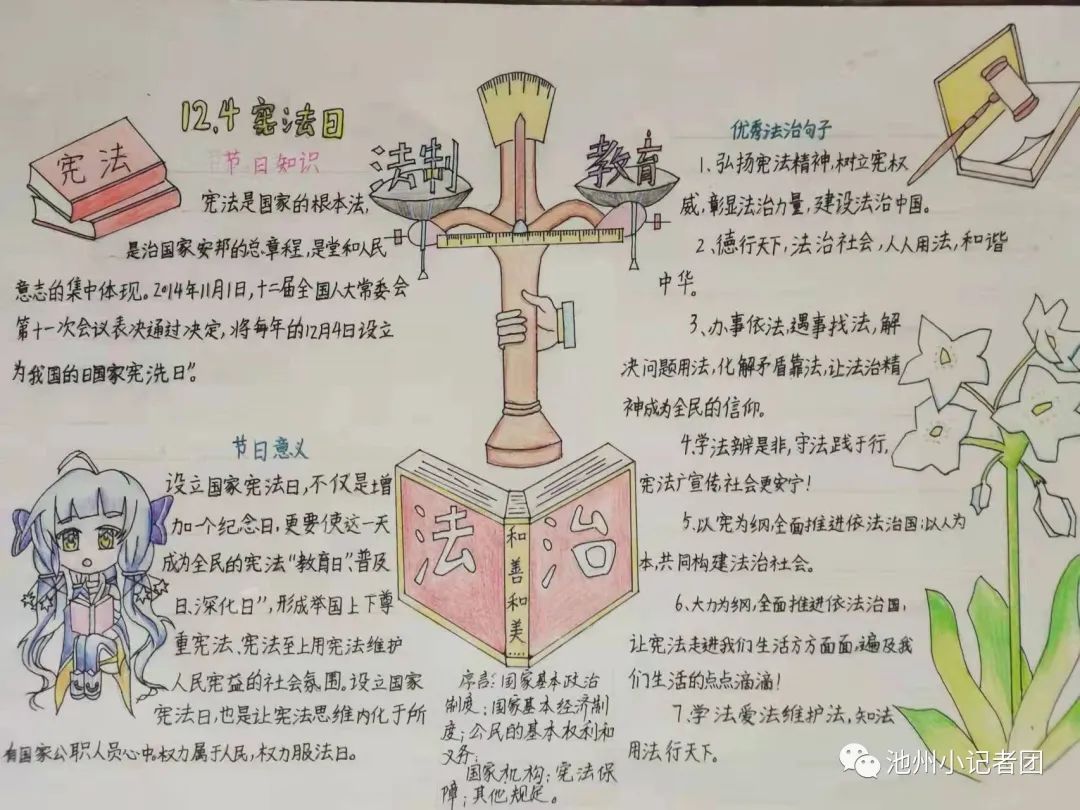 12.4宪法日
宪法
节日知识
宪法是国家的根本法,
是治国家安邦的总章程,是堂和人民
意志的集中体现。2014年11月1日,十二届全国人大常委会
第十一次会议表决通过决定,将每年的12月4日设立
为我国的日国家宪洗日”。
节日意义
设立国家宪法日,不仅是增
加一个纪念日,更要使这一天
成为全民的宪法“教育日”、普及
日、深化日”,形成举国上下尊
重宪法、宪法至上用宪法维护
人民宪益的社会氛围。设立国家
宪法日,也是让宪法思维内化于所
有国家公职人员心中,权力属于人民,权力服法日。
法制
教育
法治
和善和美
序言:国家基本政治
制度;国家基本经济制
度;公民的基本权利和
义务;
国家机构;宪法保
障;其他规定。
优秀法治句子
1、弘扬宪法精神,树立宪权
威,彰显法治力量,建设法治中国。
2、德行天下,法治社会,人人用法,和谐
中华。
3、办事依法,遇事找法,解
决问题用法,化解矛盾靠法,让法治精
神成为全民的信仰。
4.学法辨是非,守法践于行,
宪法广宣传社会更安宁!
5、以宪为纲全面推进依法治国;以人为
本,共同构建法治社会。
6、大力为纲,全面推进依法治国,
让宪法走进我们生活方方面面,遍及我
们生活的点点滴滴!
7、学法爱法维护法,知法
用法行天下。
池州小记者团